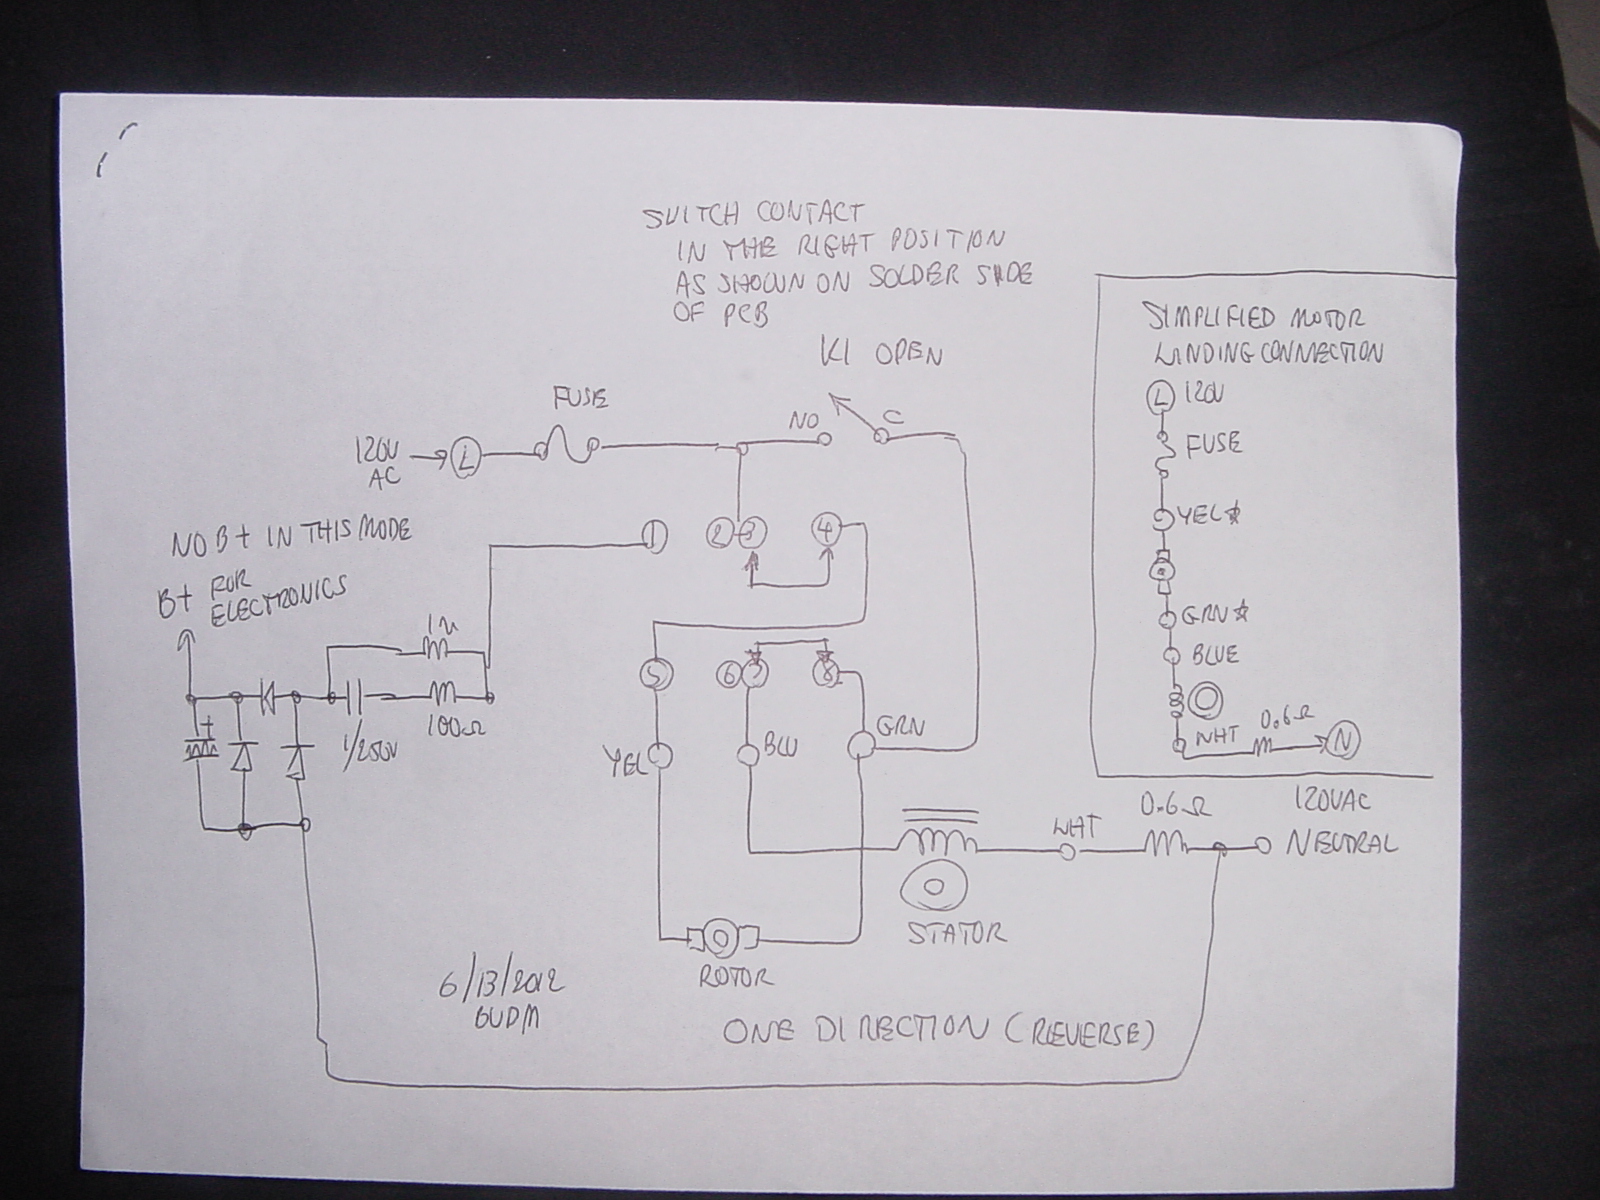 SWITCH CONTACT
IN THE RIGHT POSITION
AS SHOWN ON SOLDER SIDE
OF PCB
K1 OPEN
FUSE
NO C
120V
AC
L
1 2 3 4
NO B+ IN THIS MODE
B+ FOR
ELECTRONICS
100Ω
1/250V
+
5 6 7 8
YEL BLU GRN
STATOR
ROTOR
WHT
0.6Ω
120VAC
NEUTRAL
6/13/2012
ONE DIRECTION (REVERSE)
SIMPLIFIED MOTOR
WINDING CONNECTION
L 120V
FUSE
YEL*
GRN*
BLUE
WHT 0.6Ω N